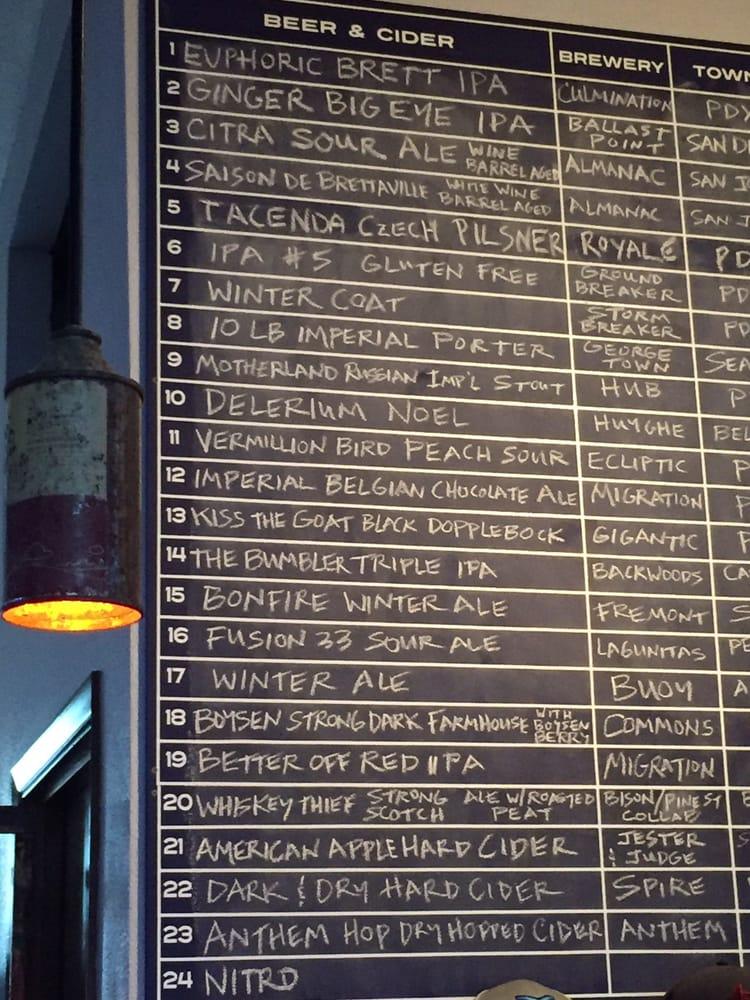 BEER & CIDER BREWERY TOWN
1 EUPHORIC BRETT IPA CULMINATION PDX
2 GINGER BIG EYE IPA BALLAST POINT SAN D
3 CITRA SOUR ALE WINE BARREL AGED ALMANAC SAN J
4 SAISON DE BRETTAVILLE WHITE WINE BARREL AGED ALMANAC SAN J
5 TACENDA CZECH PILSNER ROYALE PD
6 IPA #5 GLUTEN FREE GROUND BREAKER PD
7 WINTER COAT STORM BREAKER PD
8 10 LB IMPERIAL PORTER GEORGE TOWN SEA
9 MOTHERLAND RUSSIAN IMP'L STOUT HUB P
10 DELERIUM NOEL HUYGHE BEL
11 VERMILLION BIRD PEACH SOUR ECLIPTIC P
12 IMPERIAL BELGIAN CHOCOLATE ALE MIGRATION P
13 KISS THE GOAT BLACK DOPPLEBOCK GIGANTIC P
14 THE BUMBLER TRIPLE IPA BACKWOODS CA
15 BONFIRE WINTER ALE FREMONT S
16 FUSION 33 SOUR ALE LAGUNITAS PE
17 WINTER ALE BUOY A
18 BOYSEN STRONG DARK FARMHOUSE WITH BOYSEN BERRY COMMONS
19 BETTER OFF RED IPA MIGRATION
20 WHISKEY THIEF STRONG SCOTCH ALE W/ROASTED PEAT BISON/PINE ST COLLAB
21 AMERICAN APPLE HARD CIDER JESTER & JUDGE S
22 DARK & DRY HARD CIDER SPIRE
23 ANTHEM HOP DRY HOPPED CIDER ANTHEM
24 NITRO